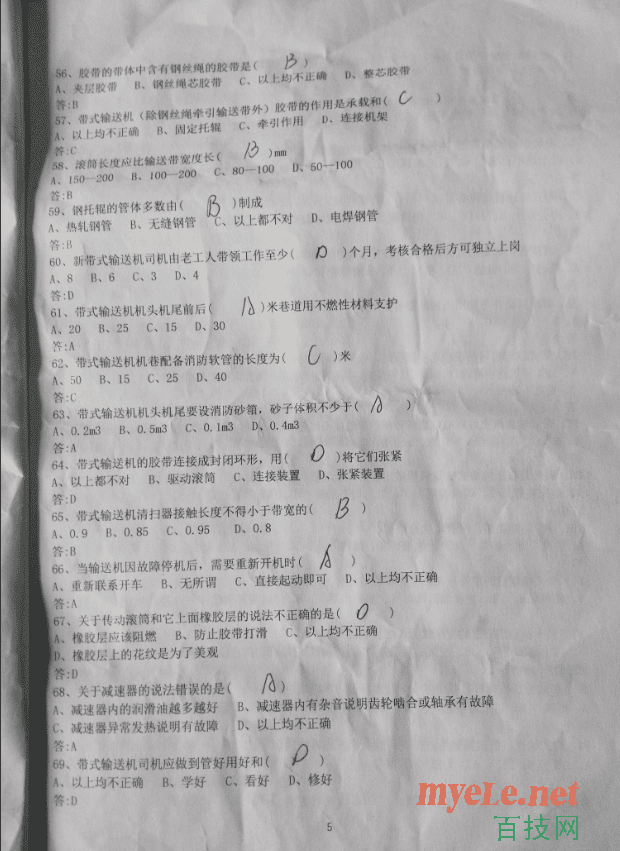 56、胶带的带体中含有钢丝绳的胶带是( B )
A、夹层胶带 B、钢丝绳芯胶带 C、以上均不正确 D、整芯胶带
答:B
57、带式输送机（除钢丝绳牵引输送带外）胶带的作用是承载和( C )
A、以上均不正确 B、固定托辊 C、牵引作用 D、连接机架
答:C
58、滚筒长度应比输送带宽度长( B )mm
A、150—200 B、100—200 C、80—100 D、50—100
答:B
59、钢托辊的管体多数由( B )制成
A、热轧钢管 B、无缝钢管 C、以上都不对 D、电焊钢管
答:B
60、新带式输送机司机由老工人带领工作至少( D )个月，考核合格后方可独立上岗
A、8 B、6 C、3 D、4
答:D
61、带式输送机机头机尾前后( A )米巷道用不燃性材料支护
A、20 B、25 C、15 D、30
答:A
62、带式输送机机巷配备消防软管的长度为( C )米
A、50 B、15 C、25 D、40
答:C
63、带式输送机机头机尾要设消防砂箱，砂子体积不少于( A )
A、0.2m3 B、0.5m3 C、0.1m3 D、0.4m3
答:A
64、带式输送机的胶带连接成封闭环形，用( D )将它们张紧
A、以上都不对 B、驱动滚筒 C、连接装置 D、张紧装置
答:D
65、带式输送机清扫器接触长度不得小于带宽的( B )
A、0.9 B、0.85 C、0.95 D、0.8
答:B
66、当输送机因故障停机后，需要重新开机时( A )
A、重新联系开车 B、无所谓 C、直接起动即可 D、以上均不正确
答:A
67、关于传动滚筒和它上面橡胶层的说法不正确的是( D )
A、橡胶层应该阻燃 B、防止胶带打滑 C、以上均不正确
D、橡胶层上的花纹是为了美观
答:D
68、关于减速器的说法错误的是( A )
A、减速器内的润滑油越多越好 B、减速器内有杂音说明齿轮啮合或轴承有故障
C、减速器异常发热说明有故障 D、以上均不正确
答:A
69、带式输送机司机应做到管好用好和( D )
A、以上均不正确 B、学好 C、看好 D、修好
答:D
5
myele.net
百技网